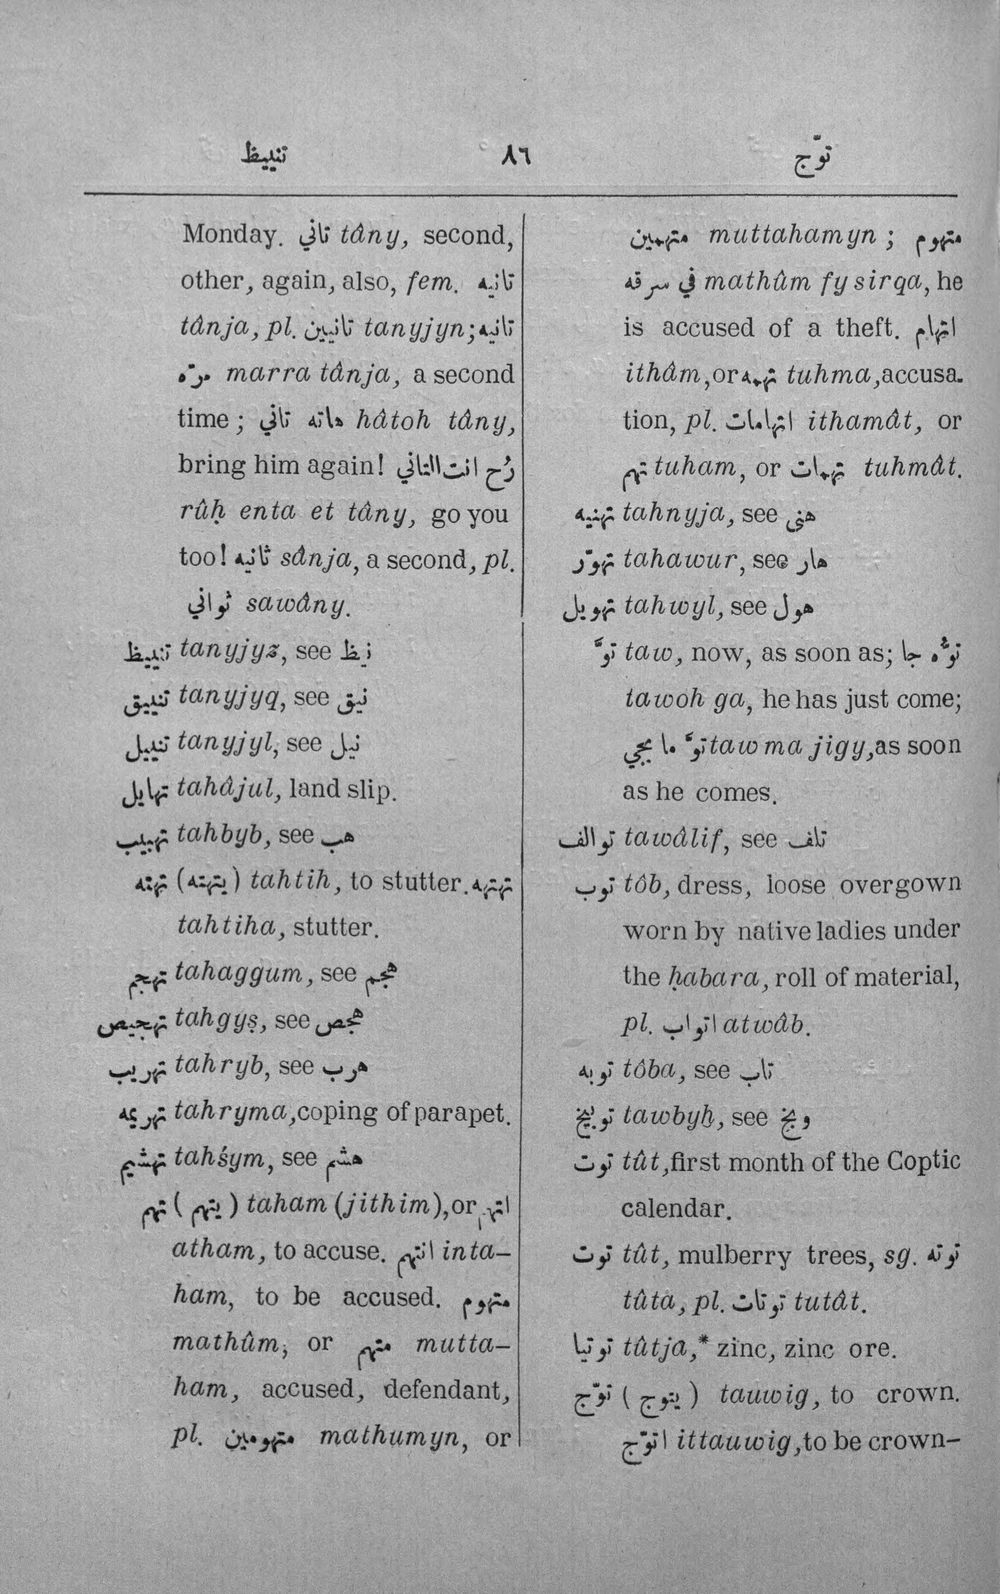 تنييظ ٨٦ توّج
Monday. تاني tâny, second,
other, again, also, fem. تانيه
tânja, pl. تانيين tanyjyn; تانيه
مرّه marra tânja, a second
time; هاته تاني hâtoh tâny,
bring him again! رُح انت التاني
rûḥ enta et tâny, go you
too! ثانيه sânja, a second, pl.
ثواني sawâny.
تنييظ tanyjyz, see نيظ
تنييق tanyjyq, see نيق
تنييل tanyjyl, see نيل
تهايل tahâjul, land slip.
تهبيب tahbyb, see هب
تهته (يتهته) tahtih, to stutter. تهتهه
tahtiha, stutter.
تهجم tahaggum, see هجم
تهجيص tahgyṣ, see هجص
تهريب tahryb, see هرب
تهريمه tahryma, coping of parapet.
تهشيم tahśym, see هشم
تهم (يتهم) taham (jithim), or اتهم
atham, to accuse. انتهم inta-
ham, to be accused. متهوم
mathûm, or متهم mutta-
ham, accused, defendant,
pl. متهومين mathumyn, or
متهمين muttahamyn; متهوم
في سرقه mathûm fy sirqa, he
is accused of a theft. اتهام
ithâm, or تهمه tuhma, accusa-
tion, pl. اتهامات ithamât, or
تهم tuham, or تهمات tuhmât.
تهنيه tahnyja, see هنى
تهوّر tahawur, see هار
تهويل tahwyl, see هول
توّ taw, now, as soon as; توُّه جا
tawoh ga, he has just come;
توَّ ما يجي taw ma jigy, as soon
as he comes.
توالف tawâlif, see تلف
توب tôb, dress, loose overgown
worn by native ladies under
the ḥabara, roll of material,
pl. اتواب atwâb.
توبه tôba, see تاب
توبيخ tawbyḫ, see وبخ
توت tût, first month of the Coptic
calendar.
توت tût, mulberry trees, sg. توته
tûta, pl. توتات tutât.
توتيا tûtja,* zinc, zinc ore.
توّج (يتوج) tauwig, to crown.
اتوّج ittauwig, to be crown-